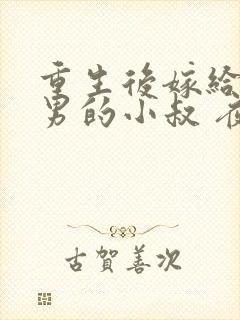 重生後嫁給
男的小叔
古賀善次